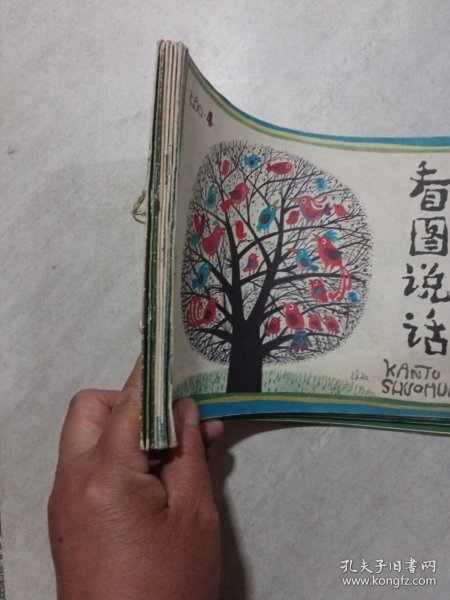 看图说话
KANTU
SHUOHU
孔夫子旧书网
www.kongfz.com